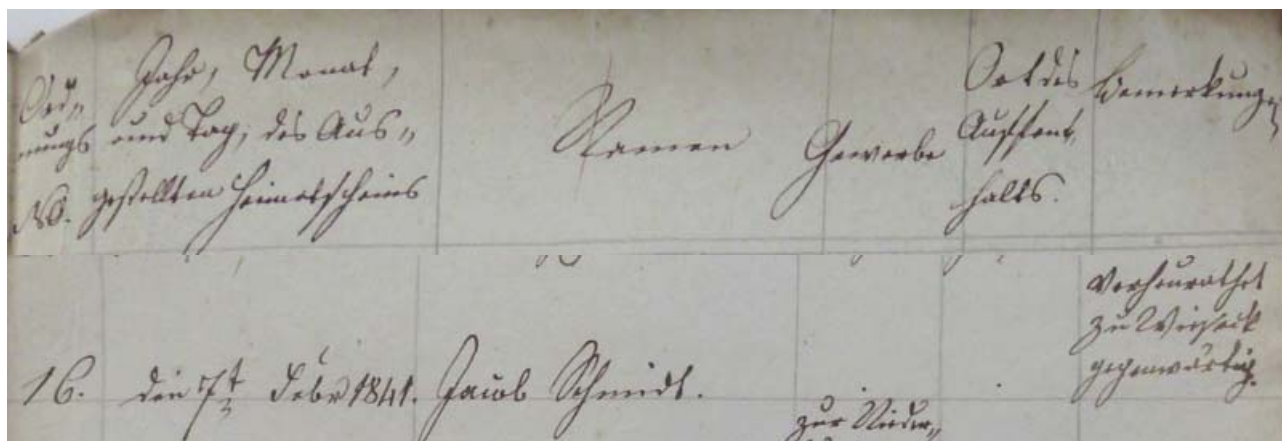 Ord„ nungs No.
Jahr, Monat, und Tag, des Aus„ gestellten Heimatscheins
Namen
Gewerbe
Ort des Auffent halts.
Bemerkungen
16. den 7t Febr 1841. Jacob Schmidt.
Verheurathet
zu Wieseck
gegenwärtig.
zur Nieder„